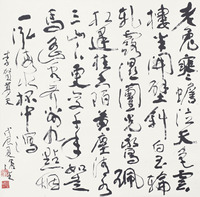 老兔寒蟾泣天色雲
樓半開壁斜白玉輪
軋露濕團光鸞珮
相逢桂香陌黃塵清水
三山下更變千年如走
馬遙望齊州九點煙
一泓海水杯中瀉
李賀夢天